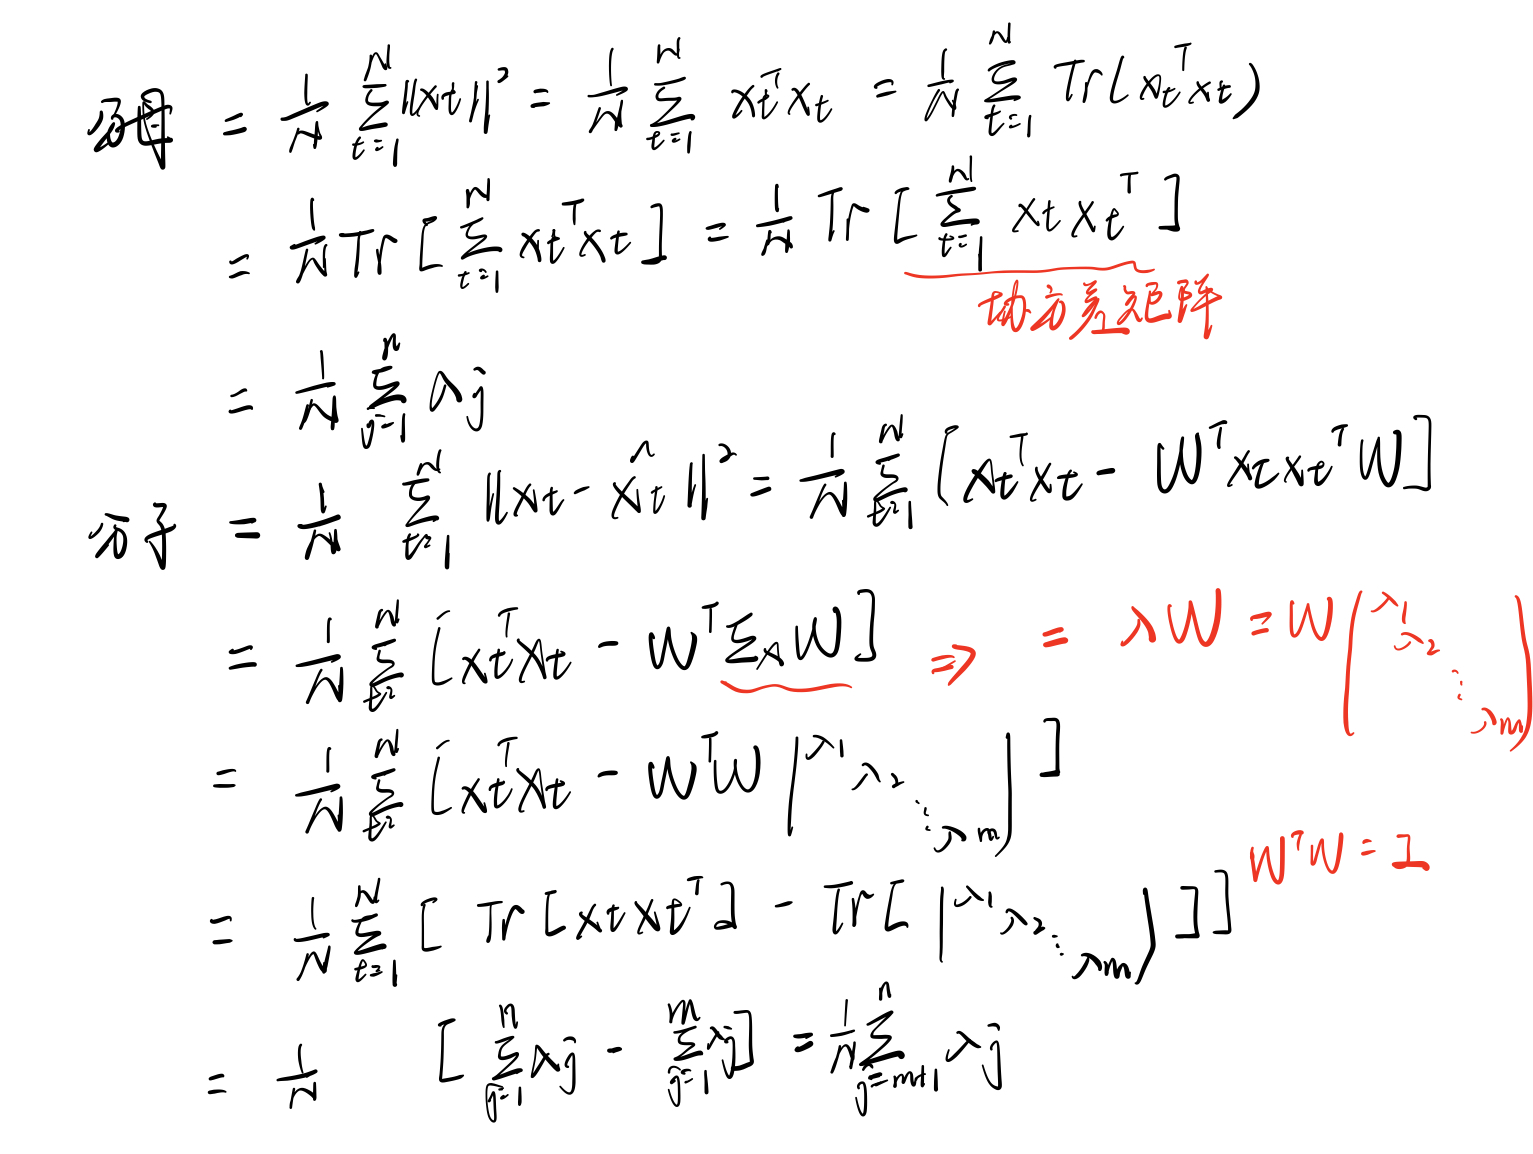 分母 = \frac{1}{N} \sum_{t=1}^{N} ||x_t||^2 = \frac{1}{N} \sum_{t=1}^{N} x_t^T x_t = \frac{1}{N} \sum_{t=1}^{N} Tr(x_t^T x_t)
= \frac{1}{N} Tr[\sum_{t=1}^{N} x_t^T x_t] = \frac{1}{N} Tr[\sum_{t=1}^{N} x_t x_t^T]
协方差矩阵
= \frac{1}{N} \sum_{j=1}^{n} λ_j
分子 = \frac{1}{N} \sum_{t=1}^{N} ||x_t - \hat{x_t}||^2 = \frac{1}{N} \sum_{t=1}^{N} [x_t^T x_t - W^T x_t x_t^T W]
= \frac{1}{N} \sum_{t=1}^{N} [x_t^T x_t - W^T Σ_x W] ⇒ = λW = W(λ_1 λ_2 ⋱ λ_m)
= \frac{1}{N} \sum_{t=1}^{N} [x_t^T x_t - W^T W (λ_1 λ_2 ⋱ λ_m)]
W^T W = I
= \frac{1}{N} \sum_{t=1}^{N} [Tr[x_t x_t^T] - Tr[(λ_1 λ_2 ⋱ λ_m)]]
= \frac{1}{N} [\sum_{j=1}^{n} λ_j - \sum_{j=1}^{m} λ_j] = \frac{1}{N} \sum_{j=m+1}^{n} λ_j